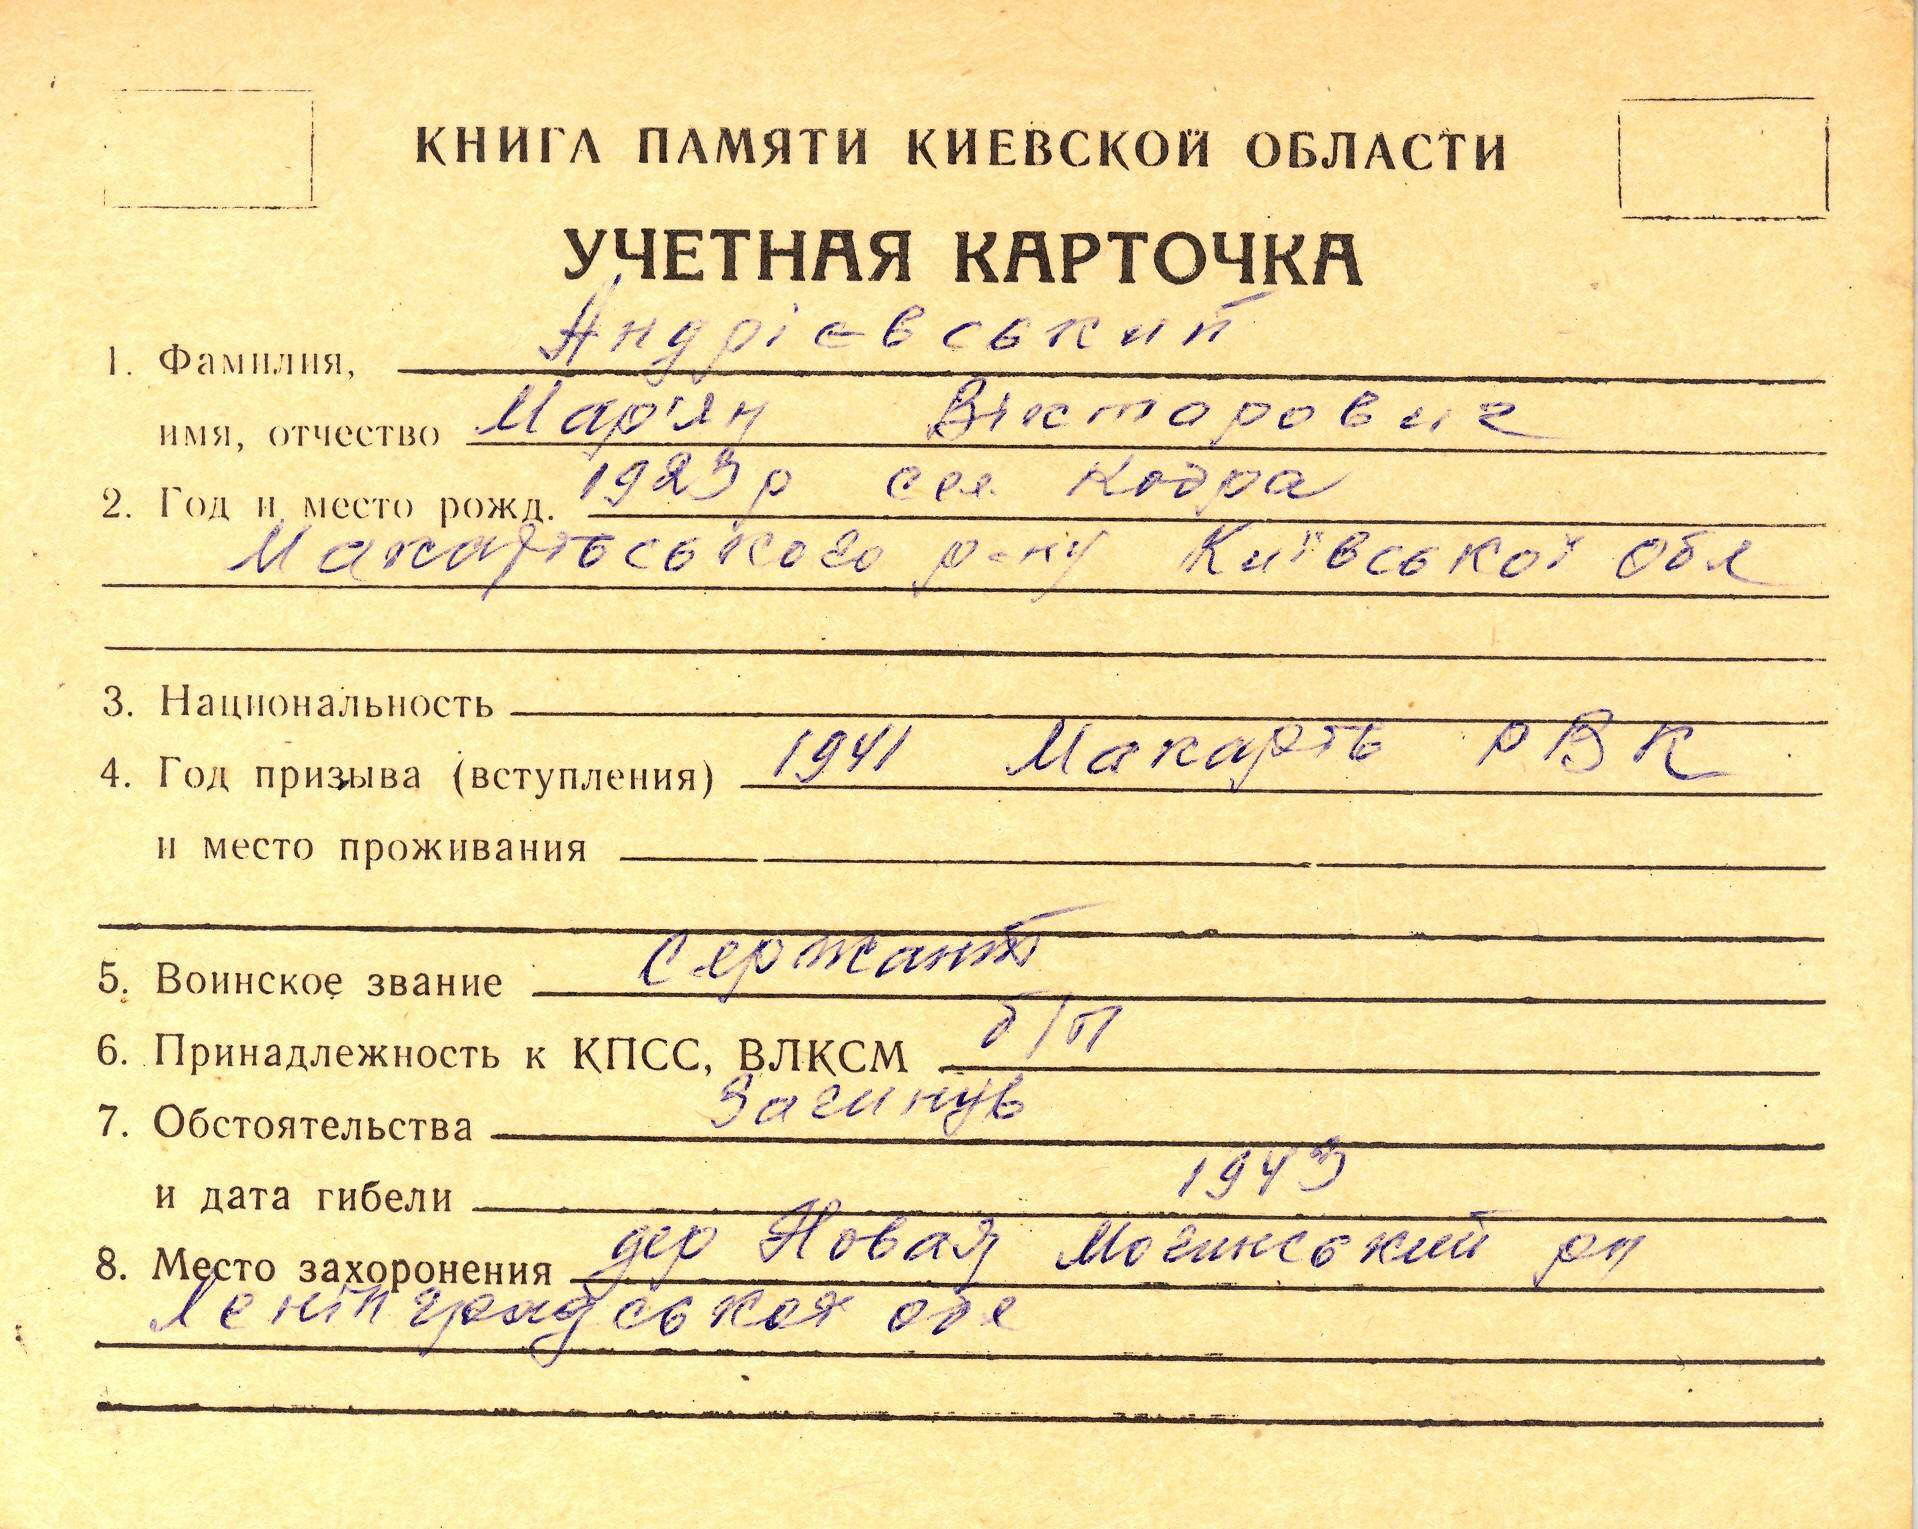 КНИГА ПАМЯТИ КИЕВСКОЙ ОБЛАСТИ
УЧЕТНАЯ КАРТОЧКА
1. Фамилия, Андрієвський
имя, отчество Мар'ян Вікторович
2. Год и место рожд. 1923р сел. Кодра
р-ну Київської обл
3. Национальность
4. Год призыва (вступления) 1941 РВК
и место проживания
5. Воинское звание Сержант
6. Принадлежность к КПСС, ВЛКСМ б/п
7. Обстоятельства Загинув
и дата гибели 1943
8. Место захоронения дер Новая рн
Ленінградської обл